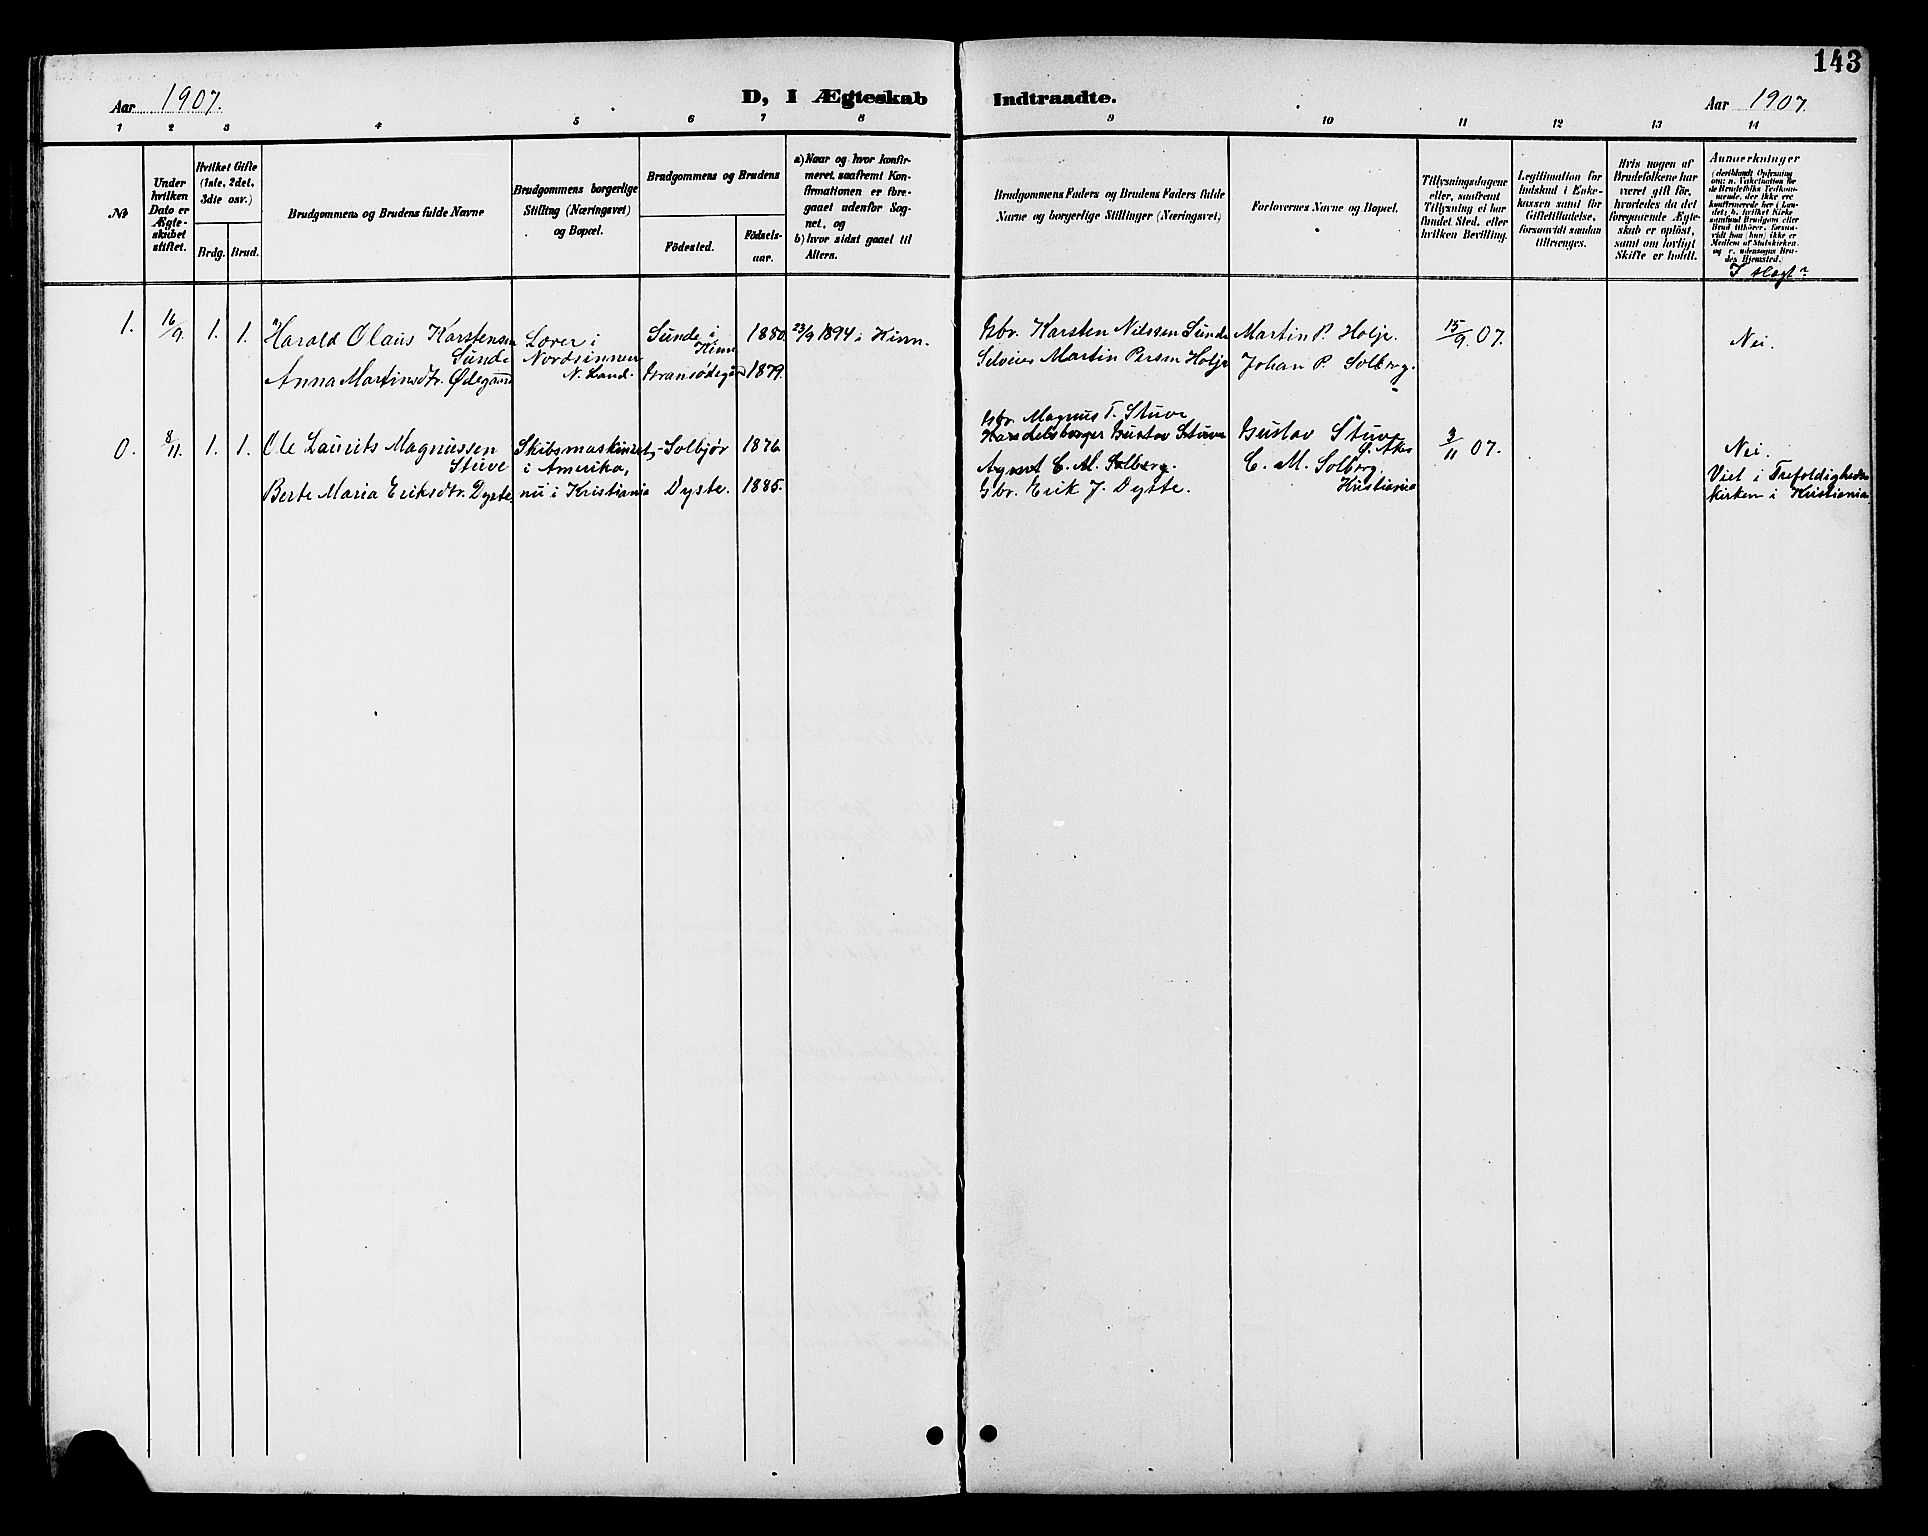 143
Aar 1907.
D, I Ægteskab Indtraadte.
Aar 1907.
1 2 3 4 5 6 7 8 9 10 11 12 13 14
№
Under hvilken Dato er Ægte-skabet stiftet.
Hvilket Gifte (1ste, 2det, 3die osv.)
Brdg. Brud.
Brudgommens og Brudens fulde Navne
Brudgommens borgerlige Stilling (Næringsvei) og Bopæl.
Brudgommens og Brudens
Födested.
Födsels-aar.
a) Naar og hvor konfir-meret, saafremt Kon-firmationen er fore-gaaet udenfor Sog-net, og
b) hvor sidst gaaet til Alters.
Brudgommens Faders og Brudens Faders fulde Navne og borgerlige Stillinger (Næringsvei)
Forlovernes Navne og Bopæl.
Tillysningsdagene eller, saafremt Tillysning ei har fundet Sted, eller hvilken Bevilling.
Legitimation for Indskud i Enke-kassen samt for Giftetilladelse, forsaavidt saadan tiltrænges.
Hvis nogen af Brudefolkene har været gift för, hvorledes da det foregaaende Ægte-skab er oplöst, samt om lovligt Skifte er holdt.
Anmærkninger
1. 16/9. 1. 1. Harald Olaus Karstensen Sunde
Lærer i Nordsinnen N. Land.
Sunde i Kinn 1880. 23/9 1894 i Kinn.
Gbr. Karsten Nilssen Sunde
Martin P. Holje.
15/9 07.
Nei.
Anna Martinsdtr. Ødegaard
1879.
Selveier Martin Persen Holje
Johan P. Solberg.
0. 8/11. 1. 1. Ole Laurits Magnussen Stuve
Skibsmaskinist, i Amerika, nu i Kristiania
Solbjør 1876
Gbr. Magnus T. Stuve
Handelsborger Gustav Stuve
Gustav Stuve Ø. Aker
3/11 07.
Nei.
C. M. Solberg.
C. M. Solberg. Kristiania
Viet i Trefoldigheds kirken i Kristiania
Berte Maria Eriksdtr. Dyste
Dyste. 1885.
Gbr. Erik J. Dyste.